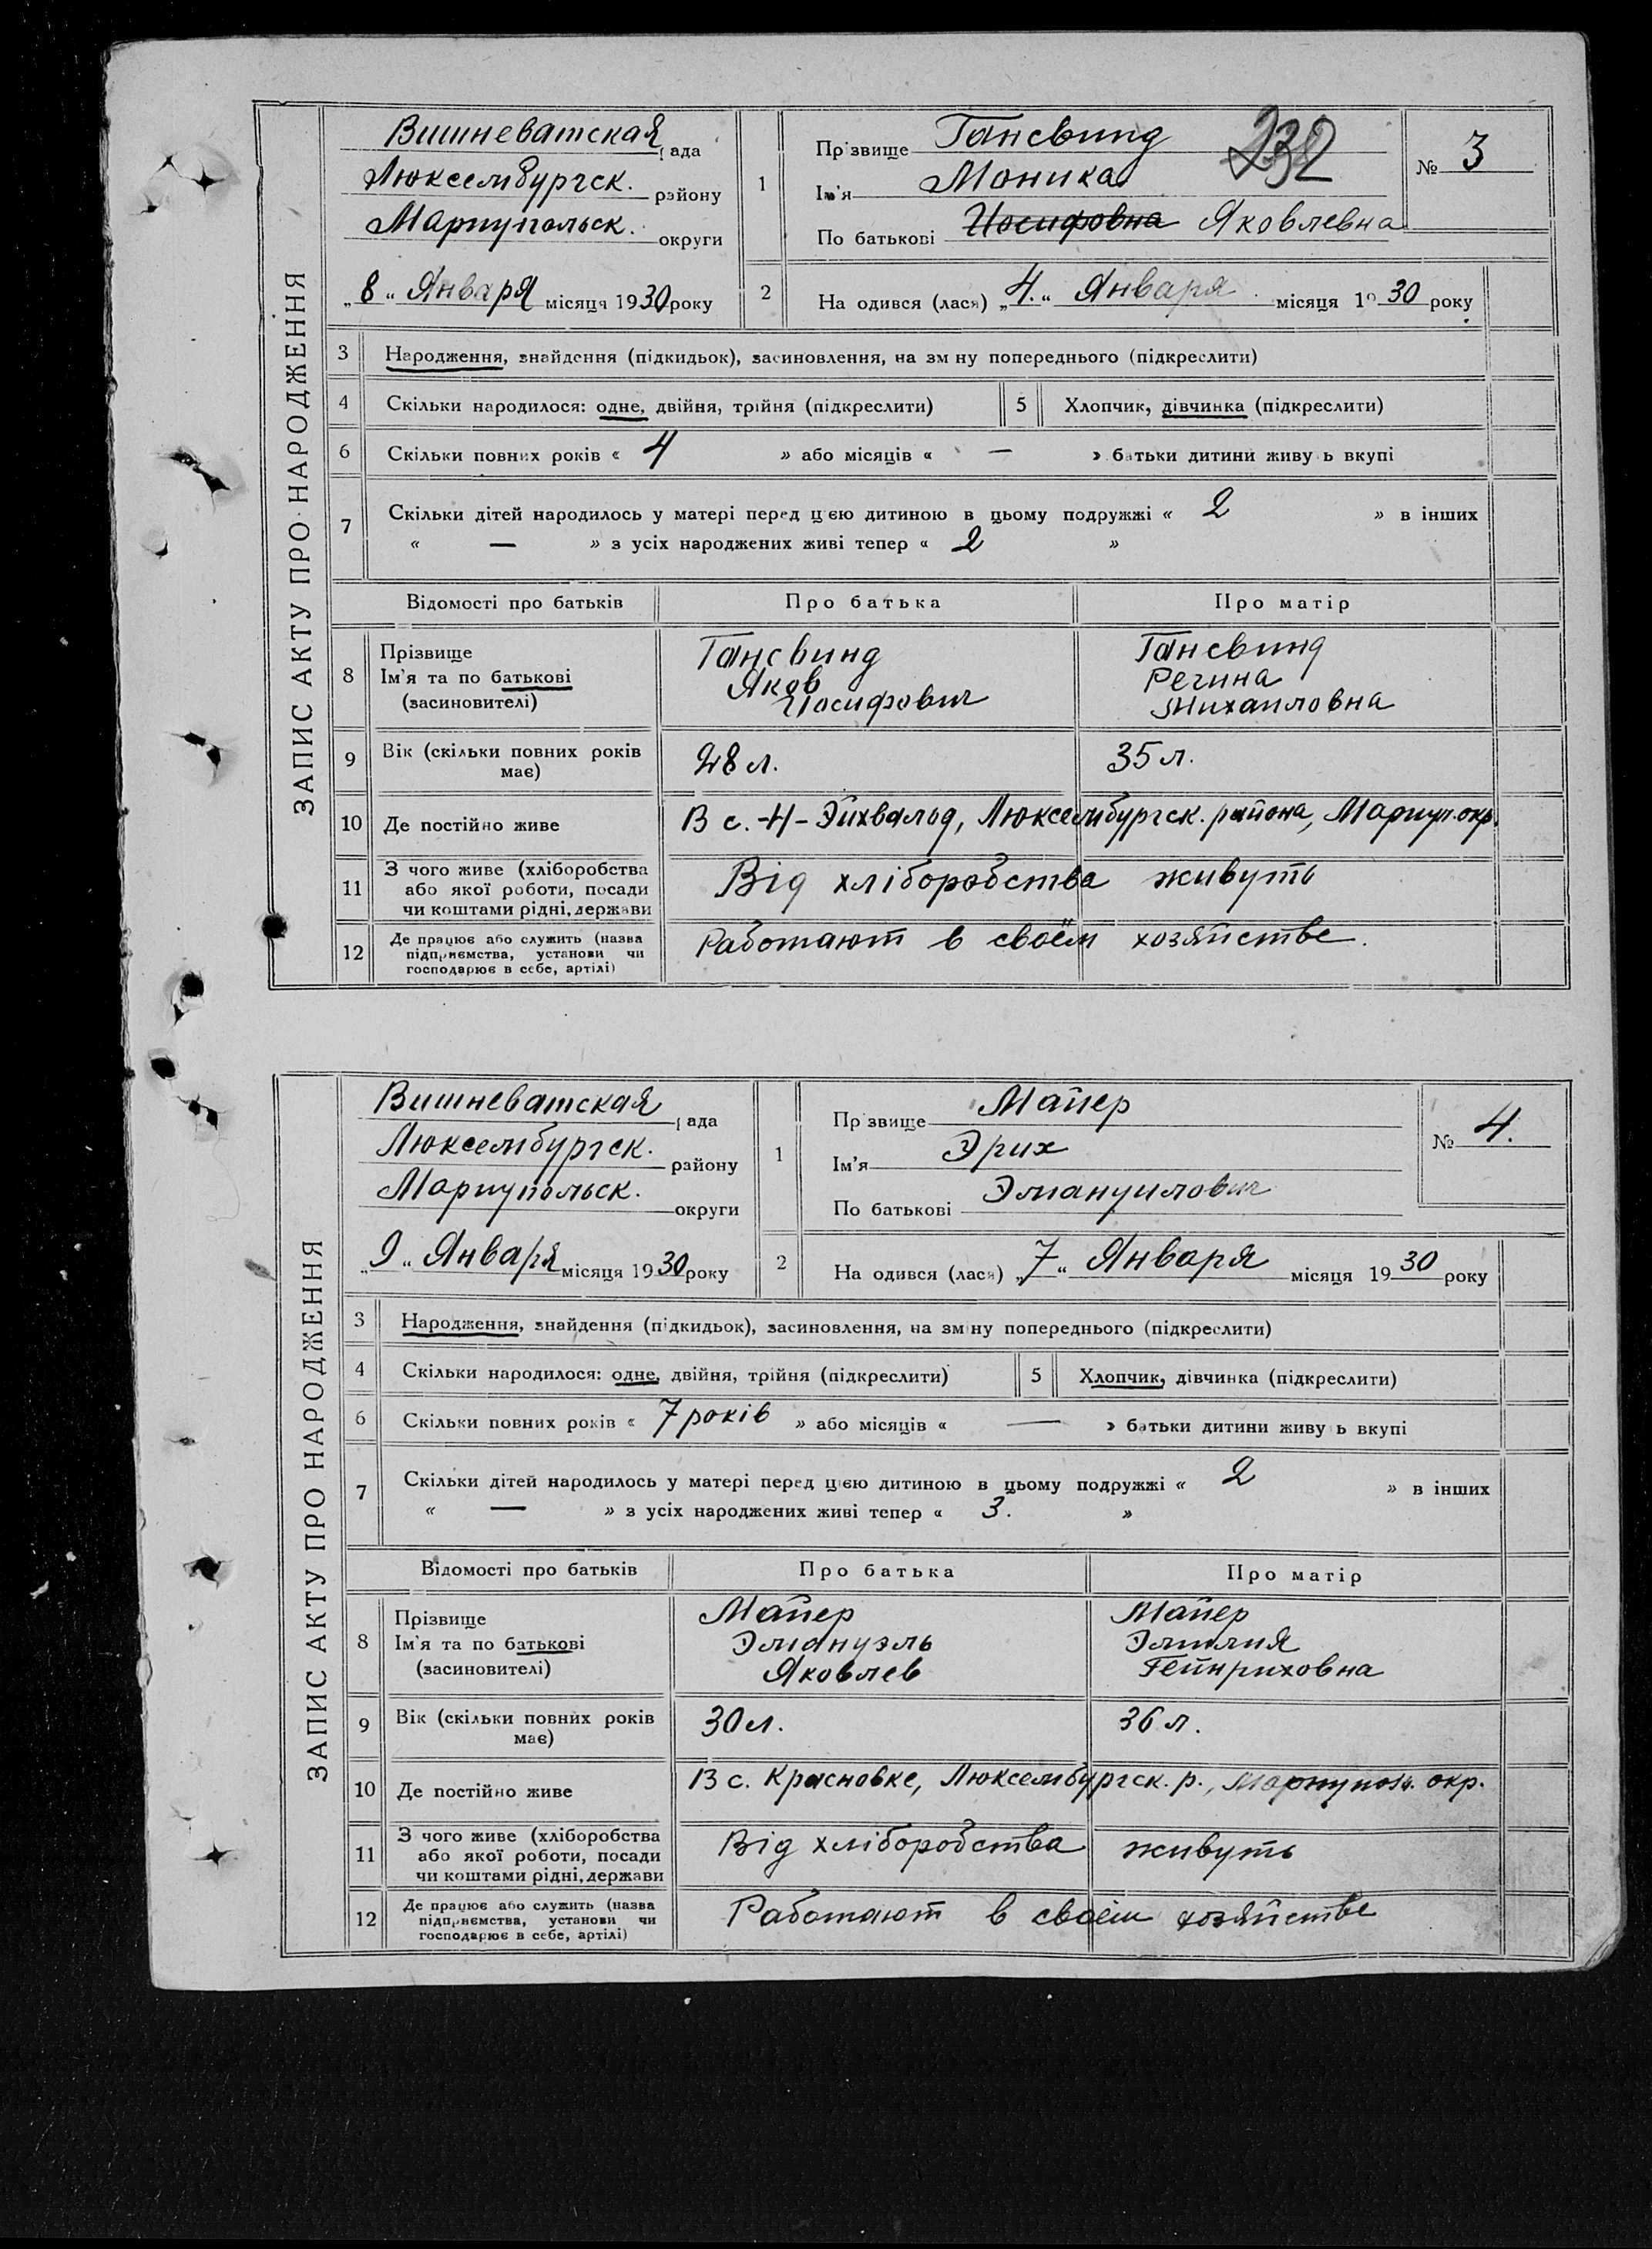 ЗАПИС АКТУ ПРО НАРОДЖЕННЯ
Вишневатская рада
Люксембургск. району
Мариупольск. округи
„8“ Января місяця 1930 року
1 Прізвище Гансвинд 232
Ім'я Моника
По батькові Иосифовна Яковлевна
№ 3
2 На одився (лася) „4.“ Января місяця 19 30 року
3 Народження, знайдення (підкидьок), засиновлення, на зміну попереднього (підкреслити)
4 Скільки народилося: одне, двійня, трійня (підкреслити) 5 Хлопчик, дівчинка (підкреслити)
6 Скільки повних років « 4 » або місяців « — » батьки дитини живуть вкупі
7 Скільки дітей народилось у матері перед цією дитиною в цьому подружжі « 2 » в інших
« — » з усіх народжених живі тепер « 2 »
Відомості про батьків Про батька Про матір
8 Прізвище Гансвинд Гансвинд
Ім'я та по батькові Яков Регина
(засиновителі) Иосифович Михаиловна
9 Вік (скільки повних років має) 28 л. 35 л.
10 Де постійно живе В с. Н-Эйхвальд, Люксембургск. района, Мариуп. окр.
11 З чого живе (хліборобства
або якої роботи, посади
чи коштами рідні, держави Від хліборобства живуть
12 Де працює або служить (назва
підприємства, установи чи
господарює в себе, артілі) Работают в своём хозяйстве.
ЗАПИС АКТУ ПРО НАРОДЖЕННЯ
Вишневатская рада
Люксембургск. району
Мариупольск. округи
„9“ Января місяця 1930 року
1 Прізвище Майер
Ім'я Эрих
По батькові Эмануилович
№ 4.
2 На одився (лася) „7“ Января місяця 19 30 року
3 Народження, знайдення (підкидьок), засиновлення, на зміну попереднього (підкреслити)
4 Скільки народилося: одне, двійня, трійня (підкреслити) 5 Хлопчик, дівчинка (підкреслити)
6 Скільки повних років « 7 років » або місяців « — » батьки дитини живуть вкупі
7 Скільки дітей народилось у матері перед цією дитиною в цьому подружжі « 2 » в інших
« — » з усіх народжених живі тепер « 3. »
Відомості про батьків Про батька Про матір
8 Прізвище Майер Майер
Ім'я та по батькові Эмануэль Эмилия
(засиновителі) Яковлев Гейнриховна
9 Вік (скільки повних років має) 30 л. 36 л.
10 Де постійно живе В с. Красновке, Люксембургск. р., Мариупол. окр.
11 З чого живе (хліборобства
або якої роботи, посади
чи коштами рідні, держави Від хліборобства живуть
12 Де працює або служить (назва
підприємства, установи чи
господарює в себе, артілі) Работают в своём хозяйстве